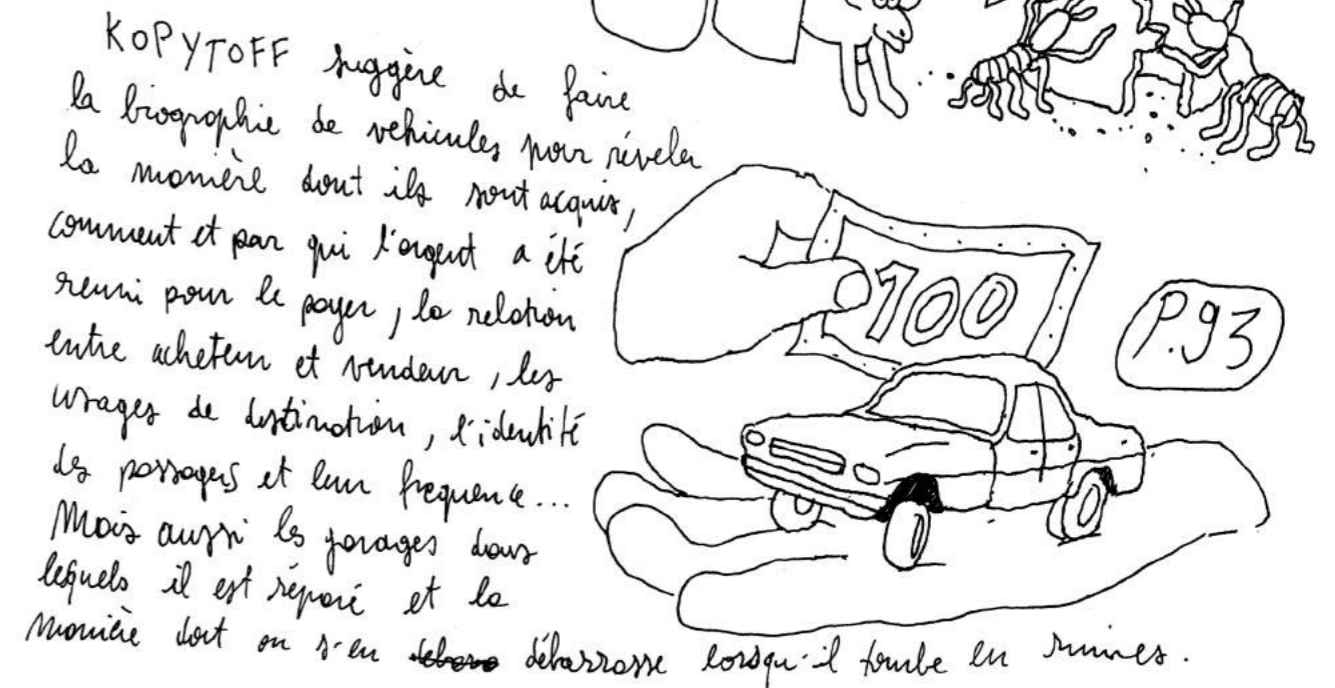 KOPYTOFF suggère de faire
la biographie de vehicules pour révéler
la manière dont ils sont acquis,
comment et par qui l'argent a été
reuni pour le payer, la relation
entre acheteur et vendeur, les
usages de destination, l'identité
des passagers et leur frequence...
Mais aussi les garages dans
lesquels il est réparé et la
manière dont on s'en débarrasse lorsqu'il tombe en ruines.
100
P.93